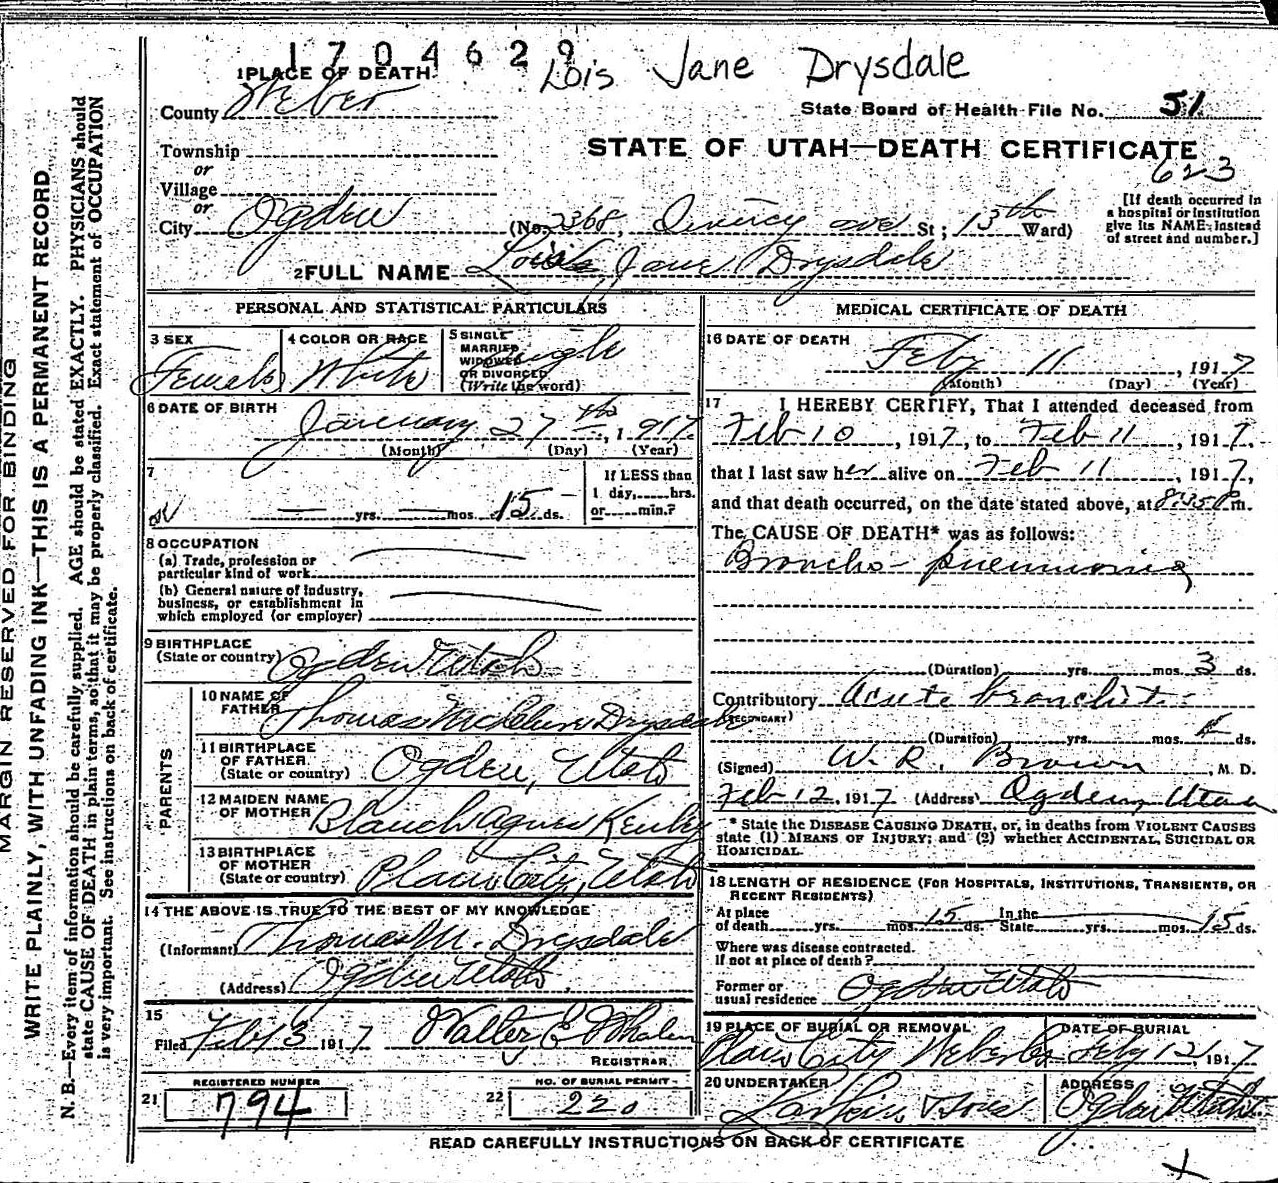 1704629
Lois Jane Drysdale
1 PLACE OF DEATH.
County Weber
State Board of Health File No. 51
STATE OF UTAH—DEATH CERTIFICATE
623
Township
or
Village
or
City Ogden (No. 2368, Quincy ave St; 13th Ward)
[If death occurred in a hospital or institution give its NAME instead of street and number.]
2 FULL NAME Lois Jane Drysdale
PERSONAL AND STATISTICAL PARTICULARS
3 SEX Female
4 COLOR OR RACE White
5 SINGLE MARRIED WIDOWED OR DIVORCED (Write the word) Single
6 DATE OF BIRTH January 27th, 1917
(Month) (Day) (Year)
7
— yrs. — mos. 15 ds.
If LESS than 1 day, hrs. or min.?
8 OCCUPATION
(a) Trade, profession or particular kind of work
(b) General nature of industry, business, or establishment in which employed (or employer)
9 BIRTHPLACE (State or country) Ogden Utah
PARENTS
10 NAME OF FATHER Thomas Drysdale
11 BIRTHPLACE OF FATHER (State or country) Ogden, Utah
12 MAIDEN NAME OF MOTHER Blanch Agnes
13 BIRTHPLACE OF MOTHER (State or country) Plain City, Utah
14 THE ABOVE IS TRUE TO THE BEST OF MY KNOWLEDGE
(Informant) Thomas M. Drysdale
(Address) Ogden Utah
15
Filed Feb 13 1917 Walter E Whalen
REGISTRAR.
21 REGISTERED NUMBER 794
22 NO. OF BURIAL PERMIT 220
MEDICAL CERTIFICATE OF DEATH
16 DATE OF DEATH
Feby 11, 1917
(Month) (Day) (Year)
17 I HEREBY CERTIFY, That I attended deceased from
Feb 10, 1917, to Feb 11, 1917,
that I last saw her alive on Feb 11, 1917,
and that death occurred, on the date stated above, at m.
The CAUSE OF DEATH* was as follows:
Broncho-pneumonia
(Duration) yrs. mos. 3 ds.
Contributory Acute bronchitis
(SECONDARY)
(Duration) yrs. mos. ds.
(Signed) W. R. Brown, M. D.
Feb 12, 1917 (Address) Ogden, Utah
* State the DISEASE CAUSING DEATH, or, in deaths from VIOLENT CAUSES
state (1) MEANS OF INJURY; and (2) whether ACCIDENTAL, SUICIDAL OR
HOMICIDAL.
18 LENGTH OF RESIDENCE (FOR HOSPITALS, INSTITUTIONS, TRANSIENTS, OR
RECENT RESIDENTS)
At place of death yrs. mos. 15 ds. In the State yrs. mos. 15 ds.
Where was disease contracted.
If not at place of death?
Former or usual residence Ogden Utah
19 PLACE OF BURIAL OR REMOVAL Plain City Weber Co
DATE OF BURIAL Feby 12, 1917
20 UNDERTAKER Larkin & Sons
ADDRESS Ogden Utah
READ CAREFULLY INSTRUCTIONS ON BACK OF CERTIFICATE
MARGIN RESERVED FOR BINDING
WRITE PLAINLY, WITH UNFADING INK—THIS IS A PERMANENT RECORD
N. B.—Every item of information should be carefully supplied. AGE should be stated EXACTLY. PHYSICIANS should
state CAUSE OF DEATH in plain terms, so that it may be properly classified. Exact statement of OCCUPATION
is very important. See instructions on back of certificate.